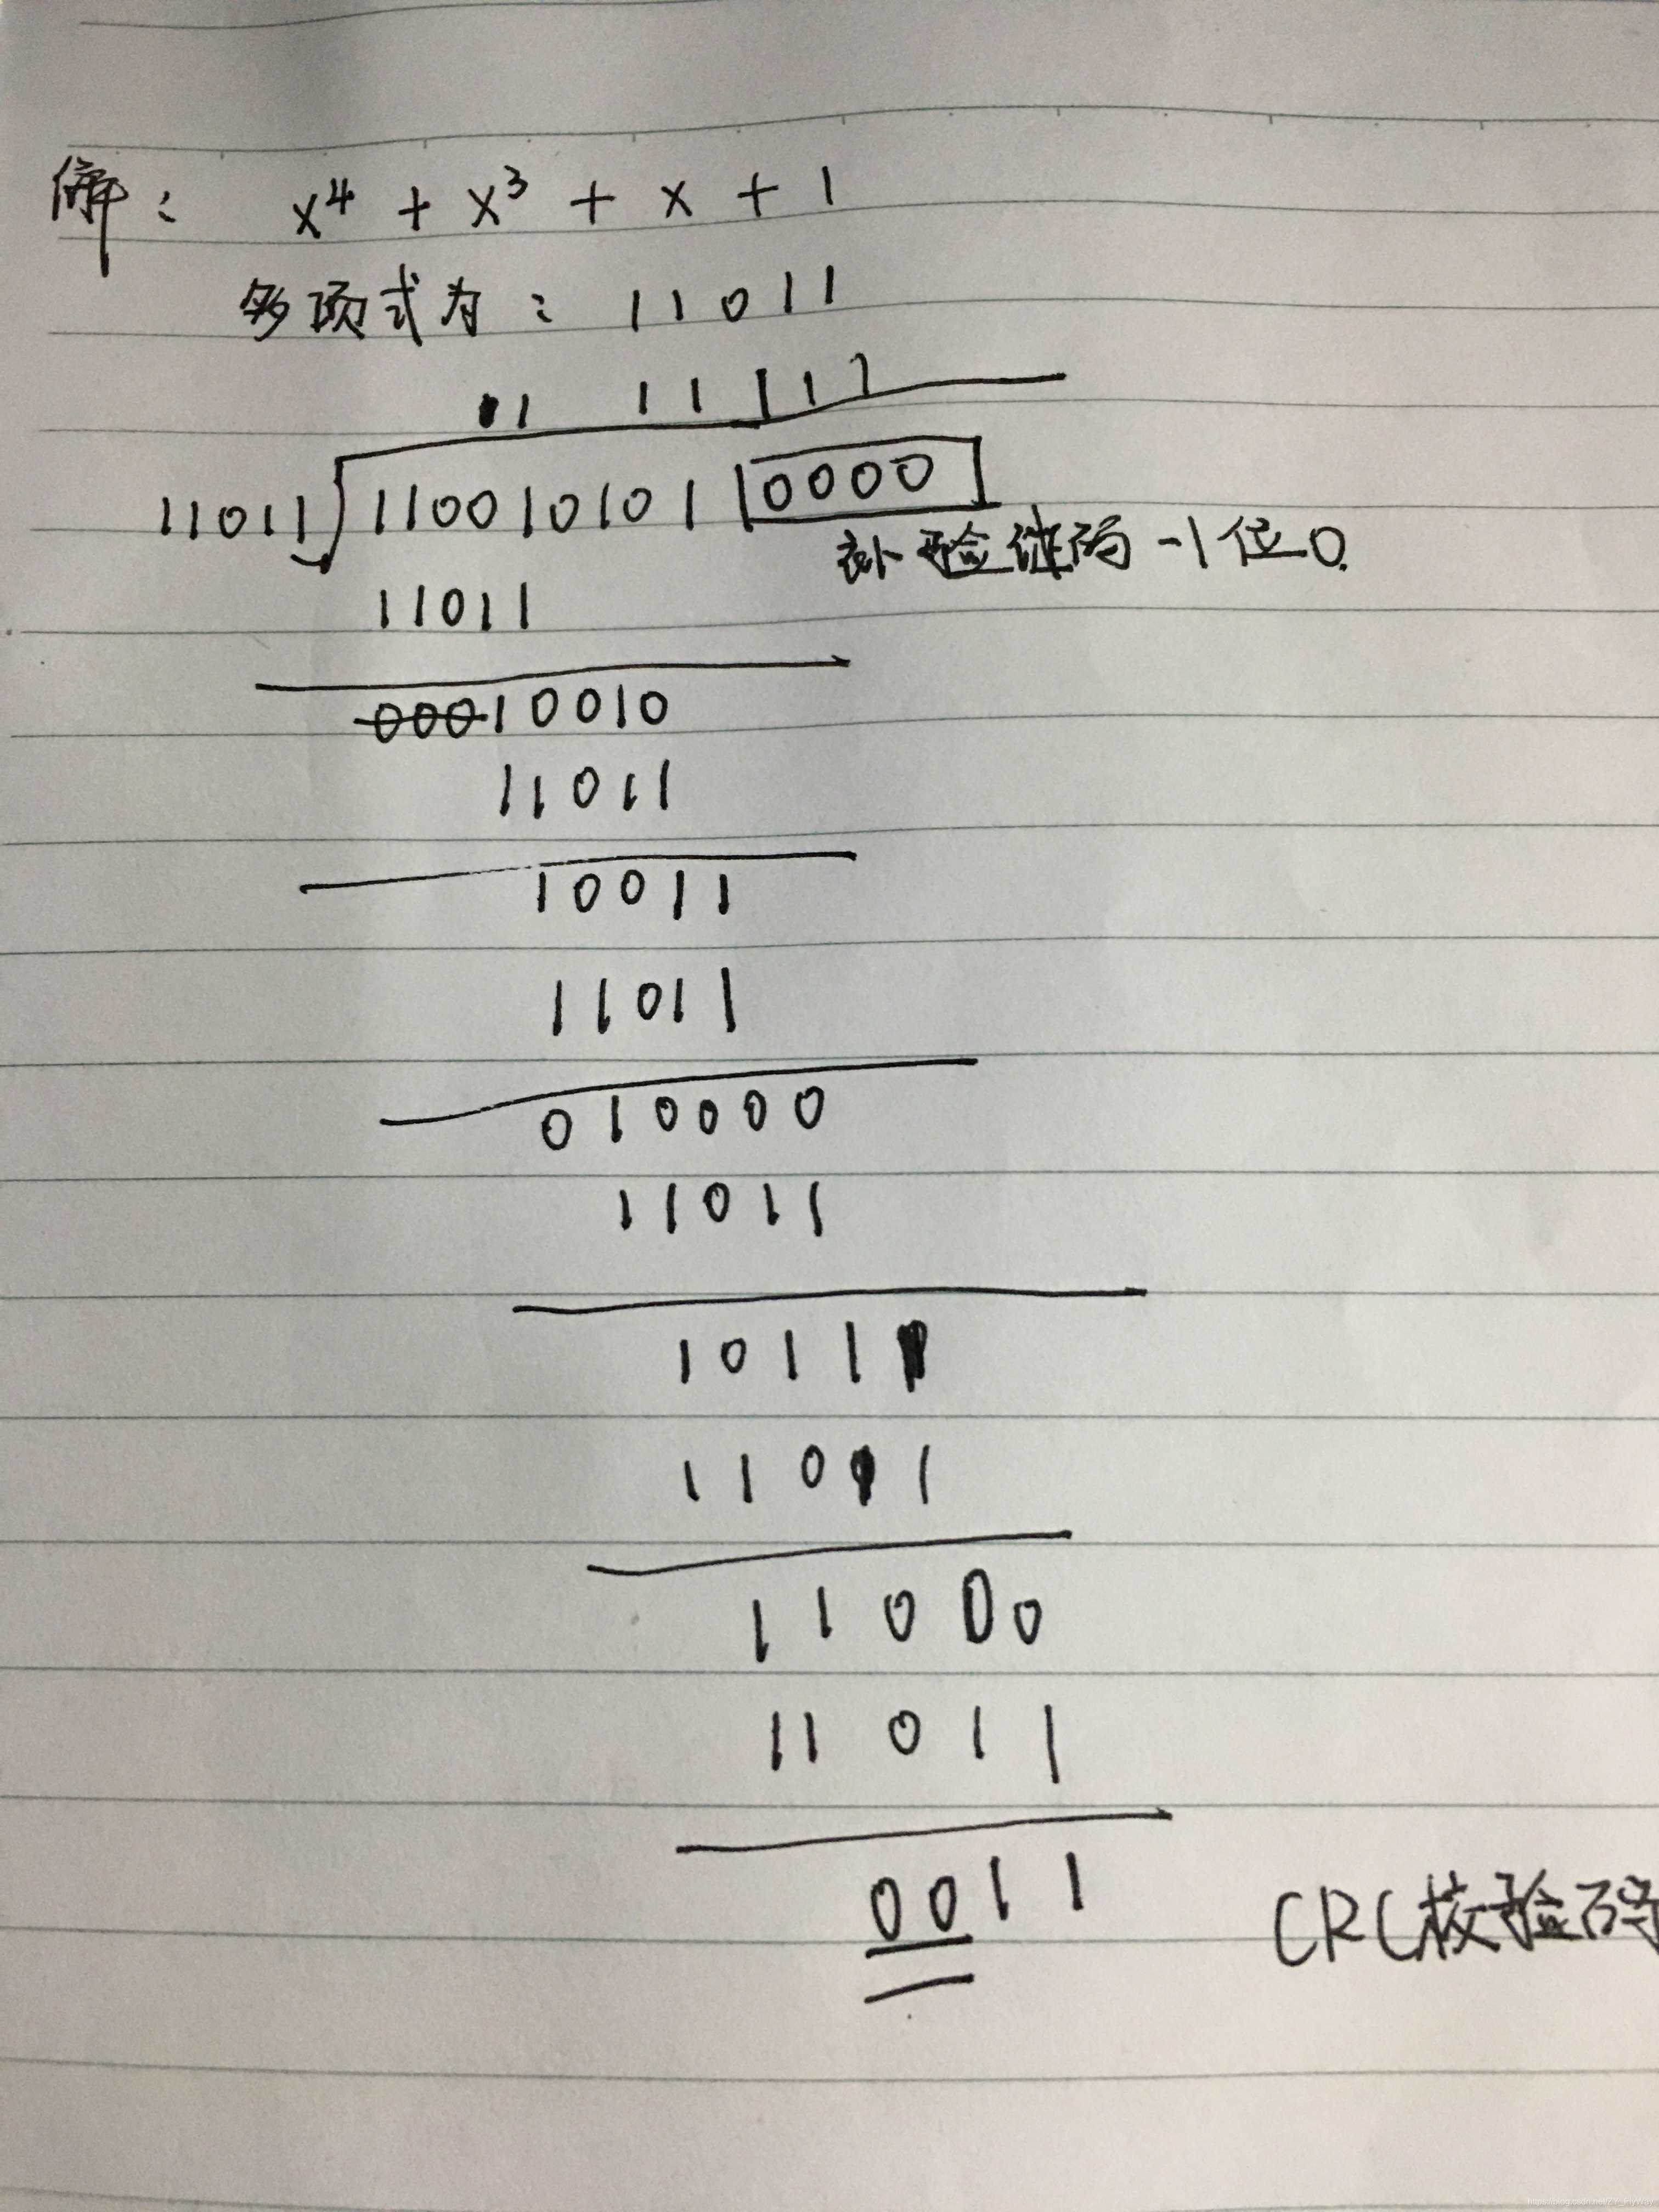 解： x⁴ + x³ + x + 1
多项式为： 11011
1 11 111
11011 110010101 0000
补验证码-1位0.
11011
00010010
11011
10011
11011
010000
11011
10111
11011
11000
11011
0011 CRC校验码